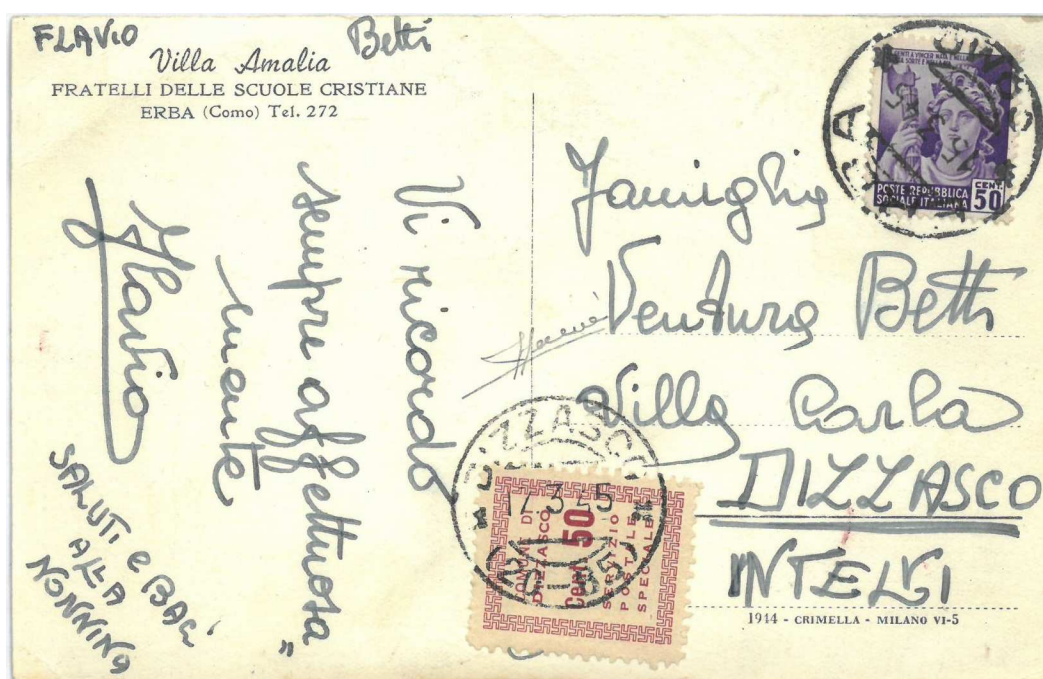 FLAVIO Betti
Villa Amalia
FRATELLI DELLE SCUOLE CRISTIANE
ERBA (Como) Tel. 272
Vi ricordo
sempre affettuosa"
mente
Flavio
SALUTI e BACI
ALLA
NONNINA
POSTE REPUBBLICA
SOCIALE ITALIANA
CENT.
50
Famiglia
Ventura Betti
Villa Carla
DIZZASCO
INTELVI
DIZZASCO
17.3.45
COMUNE DI
DIZZASCO
Cent 50
SERVIZIO
POSTALE
SPECIALE
1944 - CRIMELLA - MILANO VI-5